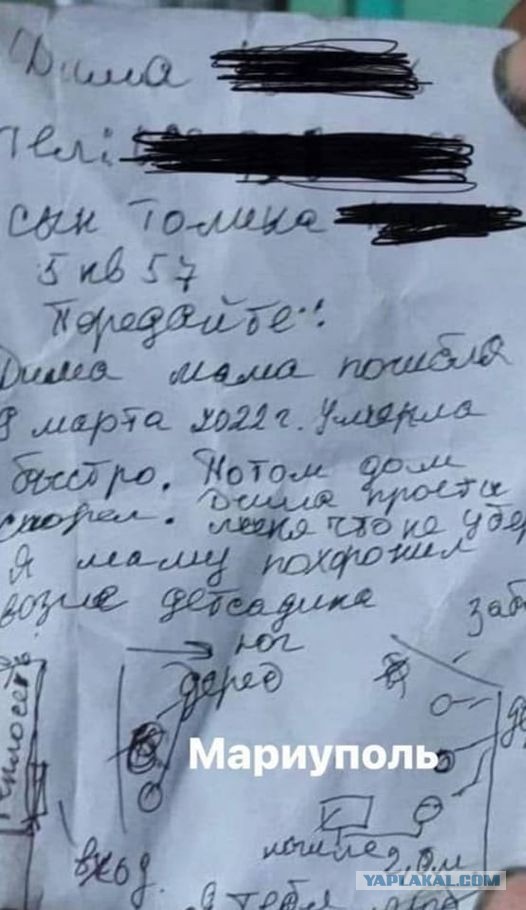 Дима
тел:
сын Толика
5 кв 57
Передайте!!
Дима мама погибла
9 марта 2022г. Умерла
быстро. Потом дом
сгорел. Дима прости
меня что не убер
Я маму похоронил
возле детсадика
заб
юг
дерев
Теплосеть
Мариуполь
вход
могила
2,0м
YAPLAKAL.COM
Я тебя люб